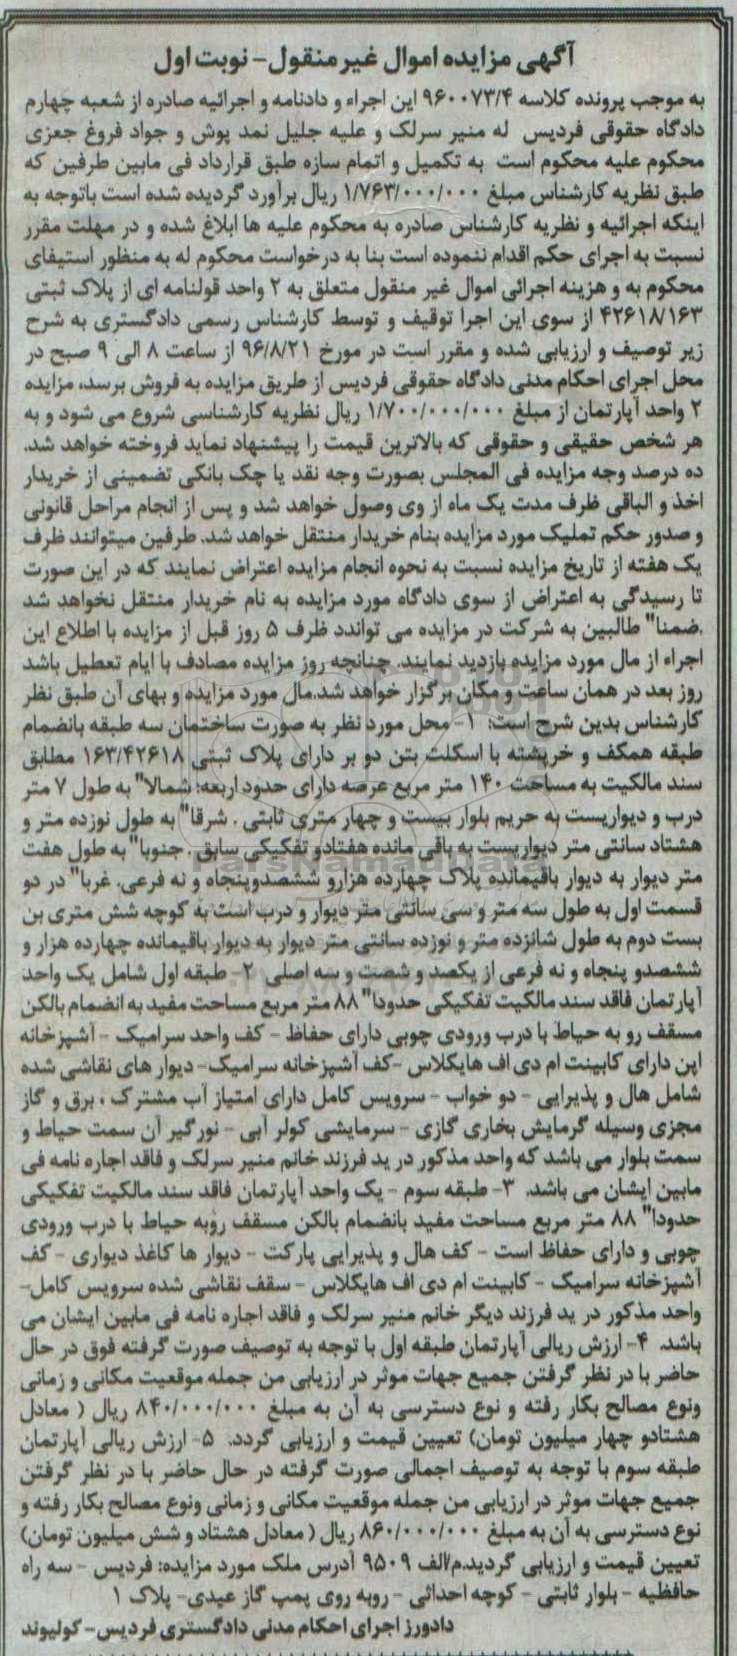 آگهی مزایده اموال غیر منقول - نوبت اول
به موجب پرونده کلاسه ۹۶۰۰۷۳/۴ این اجراء و دادنامه و اجرائیه صادره از شعبه چهارم
دادگاه حقوقی فردیس له منیر سرلک و علیه جلیل نمد پوش و جواد فروغ جعزی
محکوم علیه محکوم است به تکمیل و اتمام سازه طبق قرارداد فی مابین طرفین که
طبق نظریه کارشناس مبلغ ۱/۷۶۳/۰۰۰/۰۰۰ ریال برآورد گردیده شده است باتوجه به
اینکه اجرائیه و نظریه کارشناس صادره به محکوم علیه ها ابلاغ شده و در مهلت مقرر
نسبت به اجرای حکم اقدام ننموده است بنا به درخواست محکوم له به منظور استیفای
محکوم به و هزینه اجرائی اموال غیر منقول متعلق به ۲ واحد قولنامه ای از پلاک ثبتی
۴۲۶۱۸/۱۶۳ از سوی این اجرا توقیف و توسط کارشناس رسمی دادگستری به شرح
زیر توصیف و ارزیابی شده و مقرر است در مورخ ۹۶/۸/۲۱ از ساعت ۸ الی ۹ صبح در
محل اجرای احکام مدنی دادگاه حقوقی فردیس از طریق مزایده به فروش برسد، مزایده
۲ واحد آپارتمان از مبلغ ۱/۷۰۰/۰۰۰/۰۰۰ ریال نظریه کارشناسی شروع می شود و به
هر شخص حقیقی و حقوقی که بالاترین قیمت را پیشنهاد نماید فروخته خواهد شد.
ده درصد وجه مزایده فی المجلس بصورت وجه نقد یا چک بانکی تضمینی از خریدار
اخذ و الباقی ظرف مدت یک ماه از وی وصول خواهد شد و پس از انجام مراحل قانونی
و صدور حکم تملیک مورد مزایده بنام خریدار منتقل خواهد شد. طرفین میتوانند ظرف
یک هفته از تاریخ مزایده نسبت به نحوه انجام مزایده اعتراض نمایند که در این صورت
تا رسیدگی به اعتراض از سوی دادگاه مورد مزایده به نام خریدار منتقل نخواهد شد
.ضمنا" طالبین به شرکت در مزایده می تواندد ظرف ۵ روز قبل از مزایده با اطلاع این
اجراء از مال مورد مزایده بازدید نمایند. چنانچه روز مزایده مصادف با ایام تعطیل باشد
روز بعد در همان ساعت و مکان برگزار خواهد شد.مال مورد مزایده و بهای آن طبق نظر
کارشناس بدین شرح است: ۱- محل مورد نظر به صورت ساختمان سه طبقه بانضمام
طبقه همکف و خرپشته با اسکلت بتن دو بر دارای پلاک ثبتی ۱۶۳/۴۲۶۱۸ مطابق
سند مالکیت به مساحت ۱۴۰ متر مربع عرصه دارای حدود اربعه: شمالا" به طول ۷ متر
درب و دیواریست به حریم بلوار بیست و چهار متری ثابتی . شرقا" به طول نوزده متر و
هشتاد سانتی متر دیواریست به باقی مانده هفتادو تفکیکی سابق . جنوبا" به طول هفت
متر دیوار به دیوار باقیمانده پلاک چهارده هزارو ششصدوپنجاه و نه فرعی. غربا" در دو
قسمت اول به طول سه متر و سی سانتی متر دیوار و درب است به کوچه شش متری بن
بست دوم به طول شانزده متر و نوزده سانتی متر دیوار به دیوار باقیمانده چهارده هزار و
ششصدو پنجاه و نه فرعی از یکصد و شصت و سه اصلی ۲- طبقه اول شامل یک واحد
آپارتمان فاقد سند مالکیت تفکیکی حدودا" ۸۸ متر مربع مساحت مفید به انضمام بالکن
مسقف رو به حیاط با درب ورودی چوبی دارای حفاظ - کف واحد سرامیک - آشپزخانه
اپن دارای کابینت ام دی اف هایکلاس -کف آشپزخانه سرامیک- دیوار های نقاشی شده
شامل هال و پذیرایی - دو خواب - سرویس کامل دارای امتیاز آب مشترک ، برق و گاز
مجزی وسیله گرمایش بخاری گازی - سرمایشی کولر آبی - نورگیر آن سمت حیاط و
سمت بلوار می باشد که واحد مذکور در ید فرزند خانم منیر سرلک و فاقد اجاره نامه فی
مابین ایشان می باشد. ۳- طبقه سوم - یک واحد آپارتمان فاقد سند مالکیت تفکیکی
حدودا" ۸۸ متر مربع مساحت مفید بانضمام بالکن مسقف روبه حیاط با درب ورودی
چوبی و دارای حفاظ است - کف هال و پذیرایی پارکت - دیوار ها کاغذ دیواری - کف
آشپزخانه سرامیک - کابینت ام دی اف هایکلاس - سقف نقاشی شده سرویس کامل-
واحد مذکور در ید فرزند دیگر خانم منیر سرلک و فاقد اجاره نامه فی مابین ایشان می
باشد. ۴- ارزش ریالی آپارتمان طبقه اول با توجه به توصیف صورت گرفته فوق در حال
حاضر با در نظر گرفتن جمیع جهات موثر در ارزیابی من جمله موقعیت مکانی و زمانی
ونوع مصالح بکار رفته و نوع دسترسی به آن به مبلغ ۸۴۰/۰۰۰/۰۰۰ ریال ( معادل
هشتادو چهار میلیون تومان) تعیین قیمت و ارزیابی گردد. ۵- ارزش ریالی آپارتمان
طبقه سوم با توجه به توصیف اجمالی صورت گرفته در حال حاضر با در نظر گرفتن
جمیع جهات موثر در ارزیابی من جمله موقعیت مکانی و زمانی ونوع مصالح بکار رفته و
نوع دسترسی به آن به مبلغ ۸۶۰/۰۰۰/۰۰۰ ریال ( معادل هشتاد و شش میلیون تومان)
تعیین قیمت و ارزیابی گردید.م/الف ۹۵۰۹ آدرس ملک مورد مزایده: فردیس - سه راه
حافظیه - بلوار ثابتی - کوچه احداثی - روبه روی پمپ گاز عیدی- پلاک ۱
دادورز اجرای احکام مدنی دادگستری فردیس- کولیوند
ParsNamadData